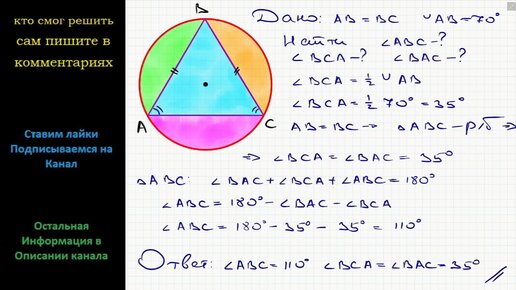 кто смог решить
сам пишите в
комментариях
Ставим лайки
Подписываемся на
Канал
Остальная
Информация в
Описании канала
B
A
C
Дано: AB = BC ∪AB = 70°
Найти ∠ABC-?
∠BCA-? ∠BAC-?
∠BCA = ½ ∪AB
∠BCA = ½ 70° = 35°
AB = BC ⇒ △ABC - р/б ⇒
⇒ ∠BCA = ∠BAC = 35°
△ABC: ∠BAC + ∠BCA + ∠ABC = 180°
∠ABC = 180° - ∠BAC - ∠BCA
∠ABC = 180° - 35° - 35° = 110°
Ответ: ∠ABC = 110° ∠BCA = ∠BAC = 35°